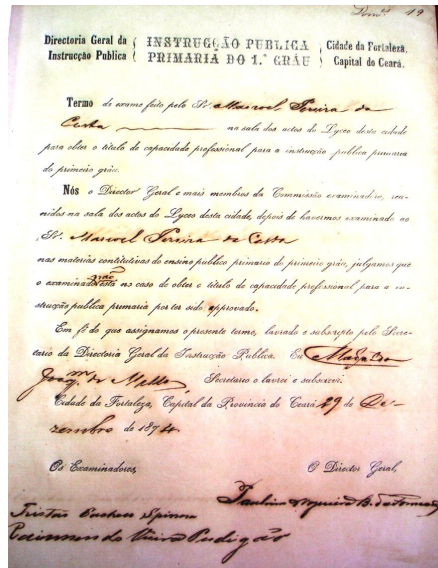 19
Directoria Geral da Instrucção Publica
INSTRUCÇÃO PUBLICA PRIMARIA DO 1.º GRÁU
Cidade da Fortaleza, Capital do Ceará.
Termo de exame feito pelo Sr. Manoel Pereira da
Costa na sala dos actos do Lyceo desta cidade
para obter o titulo de capacidade professional para a instrucção publica primaria
do primeiro gráo.
Nós o Director Geral e mais membros da Commissão examinadora, reu-
nidos na sala dos actos do Lyceo desta cidade, depois de havermos examinado ao
Sr. Manoel Pereira da Costa
nas materias constitutivas do ensino publico primario do primeiro gráo, julgamos que
o examinado não está no caso de obter o titulo de capacidade professional para a in-
strucção publica primaria por ter sido approvado.
Em fé do que assignamos o presente termo, lavrado e subscripto pelo Secre-
tario da Directoria Geral da Instrucção Publica. Eu
Joaq.m de Mello, Secretario o lavrei e subscrevi.
Cidade da Fortaleza, Capital da Provincia do Ceará 29 de De-
zembro de 187
Os Examinadores,
O Director Geral,
Paulino Nogueira B. da Fonseca
Tristão Spinosa
Raimundo Vieira Perdigão